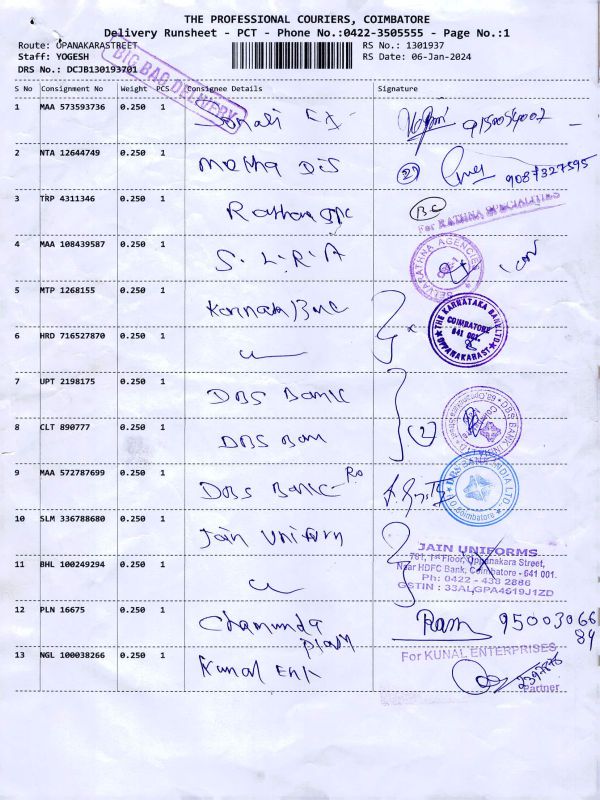 THE PROFESSIONAL COURIERS, COIMBATORE
Delivery Runsheet - PCT - Phone No.:0422-3505555 - Page No.:1
Route: OPANAKARASTREET
RS No.: 1301937
Staff: YOGESH
RS Date: 06-Jan-2024
DRS No.: DCJB130193701
BIG BAG DELIVERY
S No Consignment No Weight PCS Consignee Details Signature
1 MAA 573593736 0.250 1
2 NTA 12644749 0.250 1
9087327595
3 TRP 4311346 0.250 1 Rathna
For RATHNA SPECIALITIES
4 MAA 108439587 0.250 1 S.L.R.A
SELVARATHNA AGENCIES
5 MTP 1268155 0.250 1
THE KARNATAKA BANK LTD
COIMBATORE
641 001.
OPPANAKARAST
6 HRD 716527870 0.250 1
7 UPT 2198175 0.250 1 DBS Bank
8 CLT 890777 0.250 1 DBS Ban (2)
9 MAA 572787699 0.250 1 DBS Bank
DBS BANK INDIA LTD
Coimbatore
10 SLM 336788680 0.250 1 Jain Uniform
JAIN UNIFORMS
761, 1st Floor, Oppanakara Street,
Near HDFC Bank, Coimbatore - 641 001.
Ph: 0422 - 433 2886
GSTIN : 33ALGPA4619J1ZD
11 BHL 100249294 0.250 1
12 PLN 16675 0.250 1 Chamunda Ram 95003066
Plam 89
13 NGL 100038266 0.250 1 Kunal Ent
For KUNAL ENTERPRISES
Partner